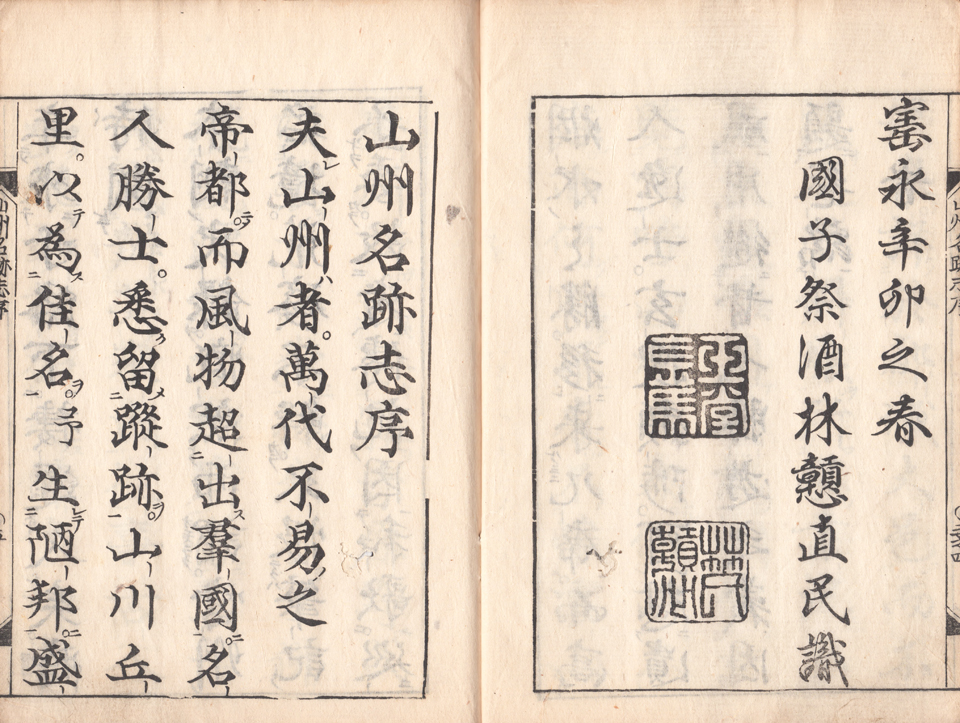 寚永辛卯之春
國子祭酒林戇直民識
山州名跡志序
夫山州者。萬代不易之
帝都。而風物超出羣國。名
人勝士。悉留蹤跡。山川丘
里。以為佳名。予生陋邦。盛
山州名跡志序